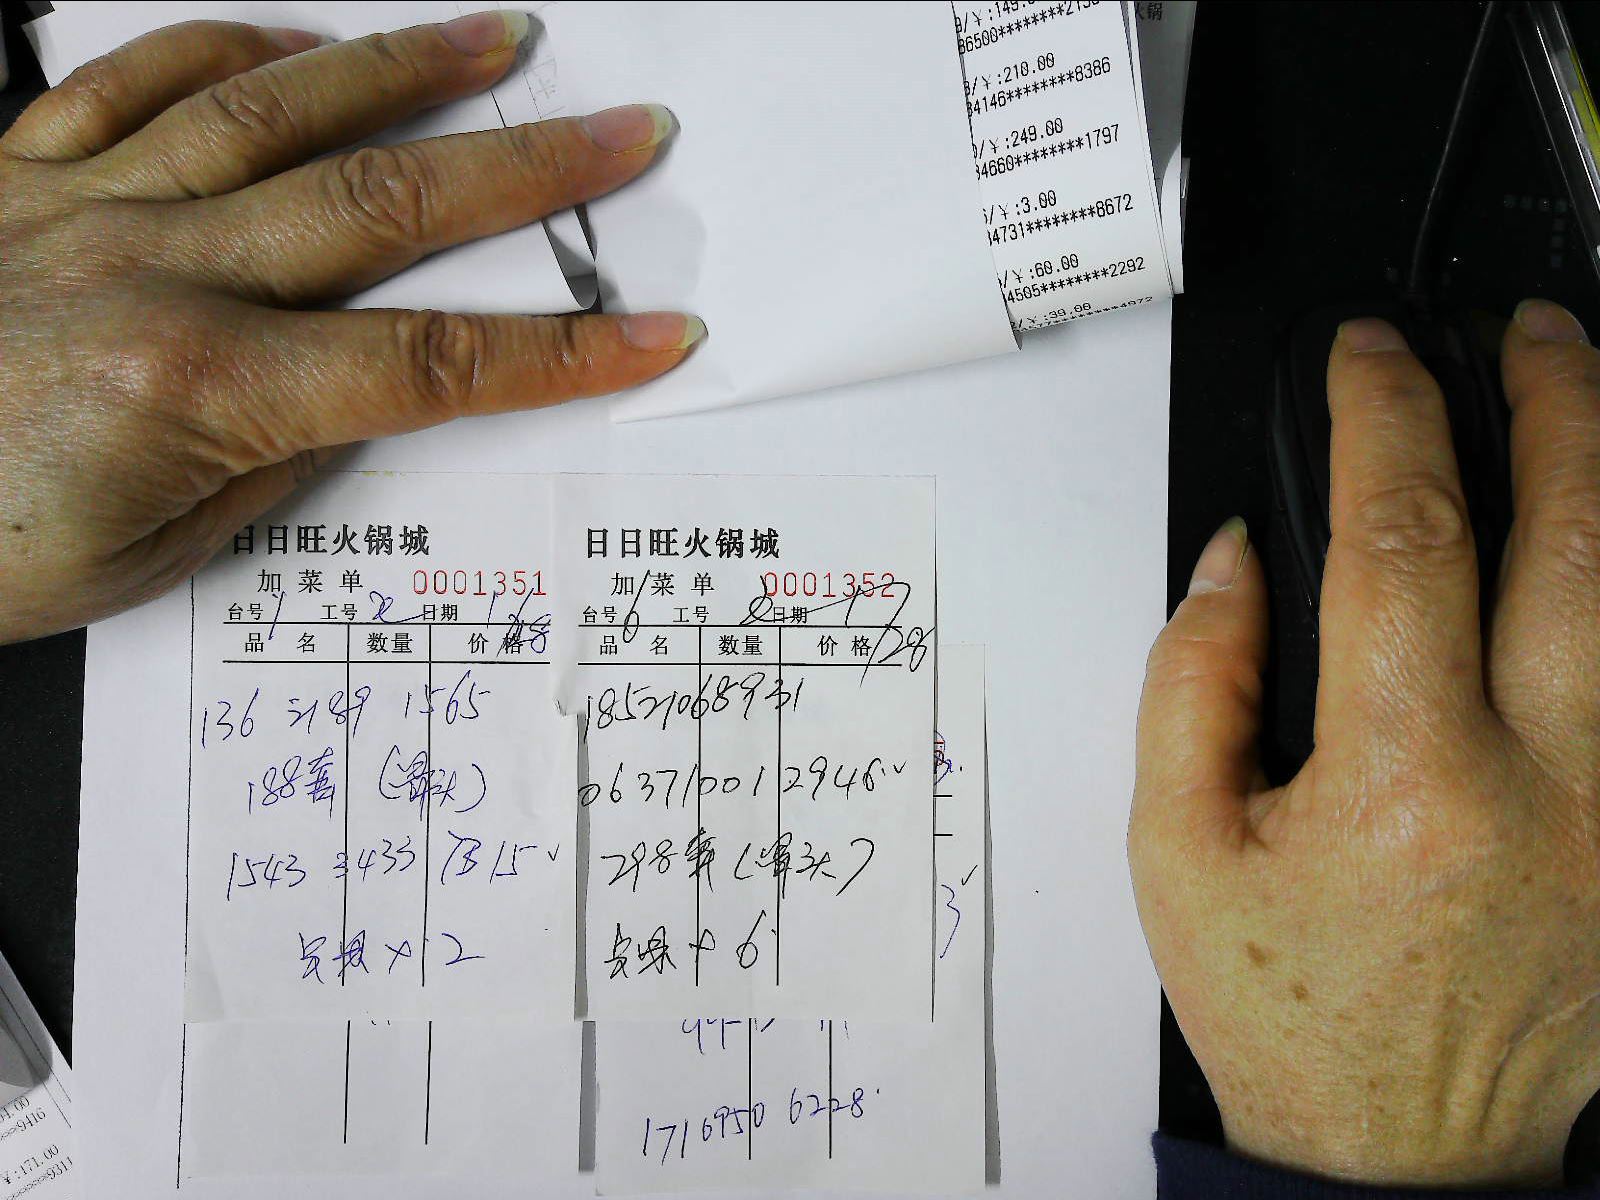 /¥:149.
36500********2150
/¥:210.00
34146********8386
/¥:249.00
34660********1797
/¥:3.00
34731********8672
/¥:60.00
4505********2292
/¥:39.00
********4972
火锅
日日旺火锅城
加菜单 0001351
台号 1 工号 2 日期 1/28
品名 数量 价格
136 3189 1565
188套 (锅头)
1543 3433 7315✓
× 2
日日旺火锅城
加菜单 0001352
台号 6 工号 2 日期 1/28
品名 数量 价格
18521068931
063710012946✓
298套 (锅头)
× 6
3✓
1716950 6228
.00
9416
¥:171.00
9311